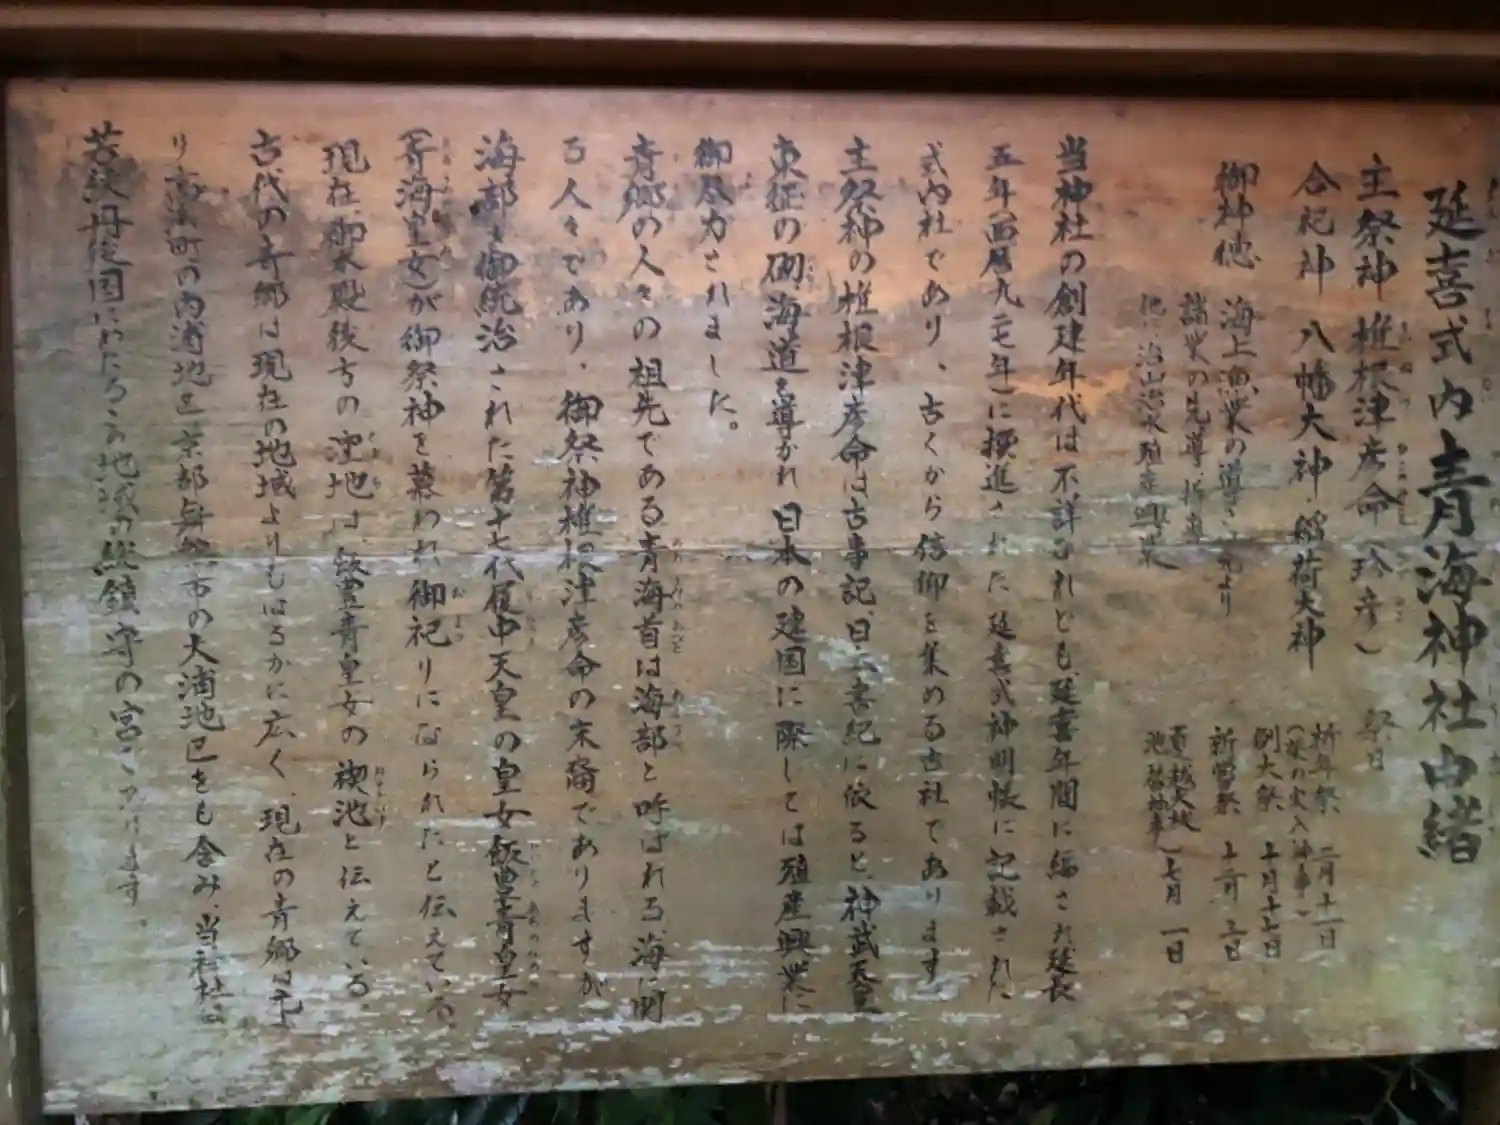 延喜式内青海神社由緒
主祭神 椎根津彦命(珍彦)
合祀神 八幡大神 稲荷大神
御神徳 海上漁業の導き 元より
諸業の先導・指導
他に治山治水殖産興業
祭日
祈年祭 二月十一日
例大祭 十月十七日
新嘗祭
夏越大祓
池 神事 七月一日
当神社の創建年代は不詳なれども、延喜年間に編され延長
五年(西暦九二七年)に撰進された延喜式神明帳に記載された
式内社であり、古くから信仰を集める古社てあります
主祭神の椎根津彦命は古事記、日本書紀に依ると、神武天皇
東征の砌海道を導かれ日本の建国に際しては殖産興業に
御尽力されました。
青郷の人々の祖先である青海首は海部と呼ばれる海に関
る人々であり、御祭神椎根津彦命の末裔でありますが
海部を御統治された第十七代履中天皇の皇女飯豊青皇女
(青海皇女)が御祭神を慕われ御祀りになられたと伝えている。
現在御本殿後方の窪地は飯豊青皇女の禊池と伝えている。
古代の青郷は現在の地域よりもはるかに広く、現在の青郷は元よ
り高浜町の内浦地区、京都舞鶴市の大浦地区をも含み、当社は
若狭丹後国にわたるこの地域の総鎮守の宮でございます。